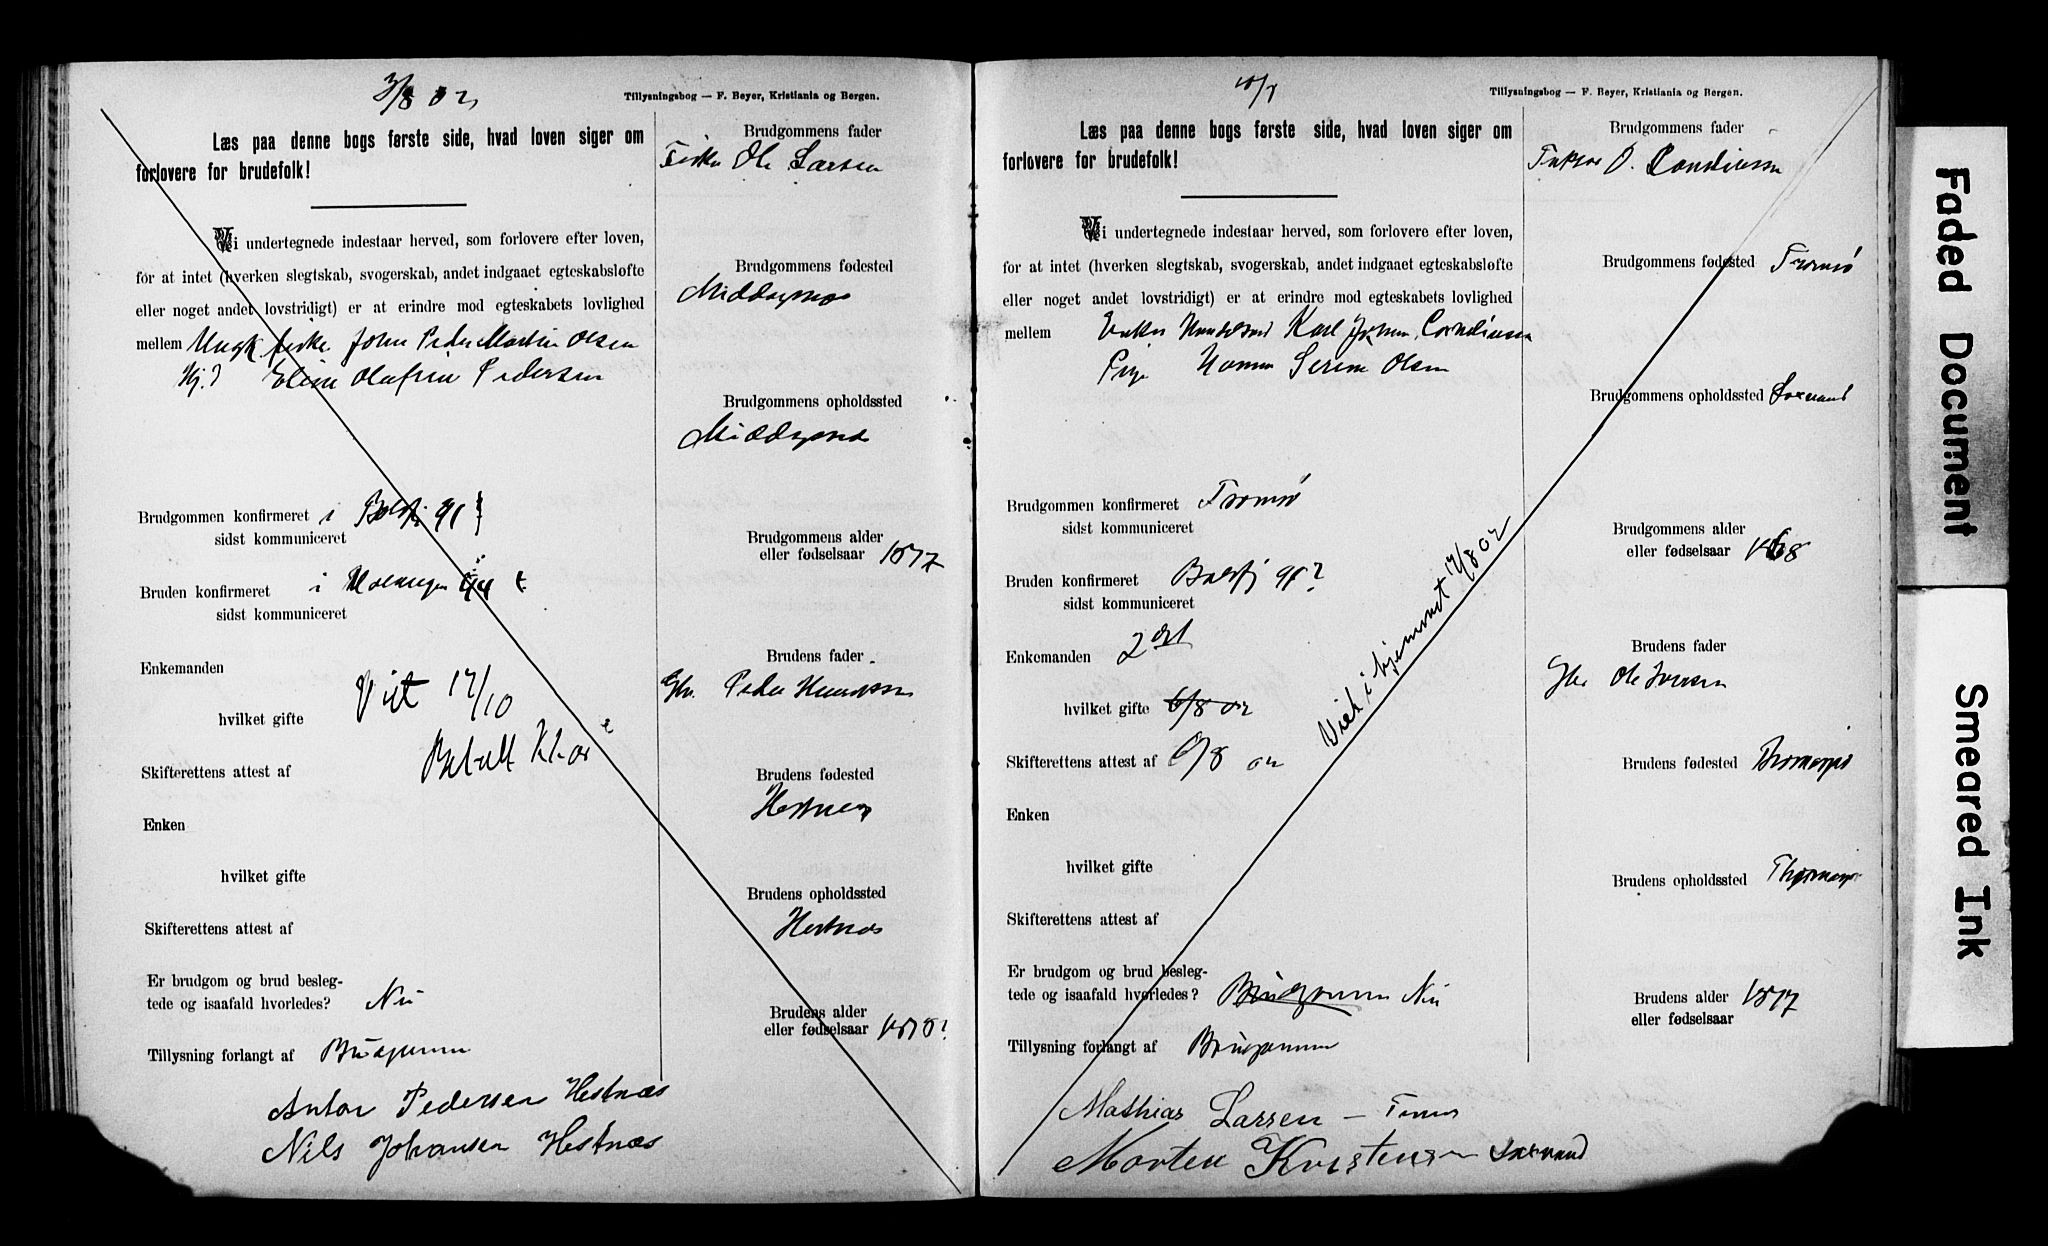 3/8 02
Tillysningsbog — F. Beyer, Kristiania og Bergen.
Læs paa denne bogs første side, hvad loven siger om
forlovere for brudefolk!
Vi undertegnede indestaar herved, som forlovere efter loven,
for at intet (hverken slegtskab, svogerskab, andet indgaaet egteskabsløfte
eller noget andet lovstridigt) er at erindre mod egteskabets lovlighed
mellem Ungk fisker John Peder Martin Olsen
Elen Olufine Pedersen
Brudgommen konfirmeret i Balsfj 91
sidst kommuniceret
Bruden konfirmeret i Malangen
sidst kommuniceret
Enkemanden
Viet 12/10
hvilket gifte
Betalt
Skifterettens attest af
Enken
hvilket gifte
Skifterettens attest af
Er brudgom og brud besleg-
tede og isaafald hvorledes? Nei
Tillysning forlangt af Brudgommen
Anton Pedersen Hestnæs
Nils Johansen Hestnæs
Brudgommens fader
Fisker Ole Larsen
Brudgommens fødested
Middagsnes
Brudgommens opholdssted
Middagsnes
Brudgommens alder
eller fødselsaar 1877
Brudens fader
Gbr. Peder
Brudens fødested
Hestnes
Brudens opholdssted
Hestnæs
Brudens alder
eller fødselsaar 1878?
Tillysningsbog — F. Beyer, Kristiania og Bergen.
Læs paa denne bogs første side, hvad loven siger om
forlovere for brudefolk!
Vi undertegnede indestaar herved, som forlovere efter loven,
for at intet (hverken slegtskab, svogerskab, andet indgaaet egteskabsløfte
eller noget andet lovstridigt) er at erindre mod egteskabets lovlighed
mellem Enkem Karl Johan Corneliussen
Pige Serine Olsen
Brudgommen konfirmeret Tromsø
sidst kommuniceret
Bruden konfirmeret Balsfj 91?
sidst kommuniceret
Enkemanden 2det
hvilket gifte 6/8 02
Skifterettens attest af 6/8 02
Enken
hvilket gifte
Skifterettens attest af
Er brudgom og brud besleg-
tede og isaafald hvorledes? Brudgommen Nei
Tillysning forlangt af Brudgommen
Viet i hjemmet 12/8 02
Mathias Larsen —
Morten Kristensen
Brudgommens fader
O. Corneliussen
Brudgommens fødested Tromsø
Brudgommens opholdssted
Brudgommens alder
eller fødselsaar 1868
Brudens fader
Gbr Ole
Brudens fødested
Brudens opholdssted
Brudens alder 1877
eller fødselsaar
Faded Document
Smeared Ink